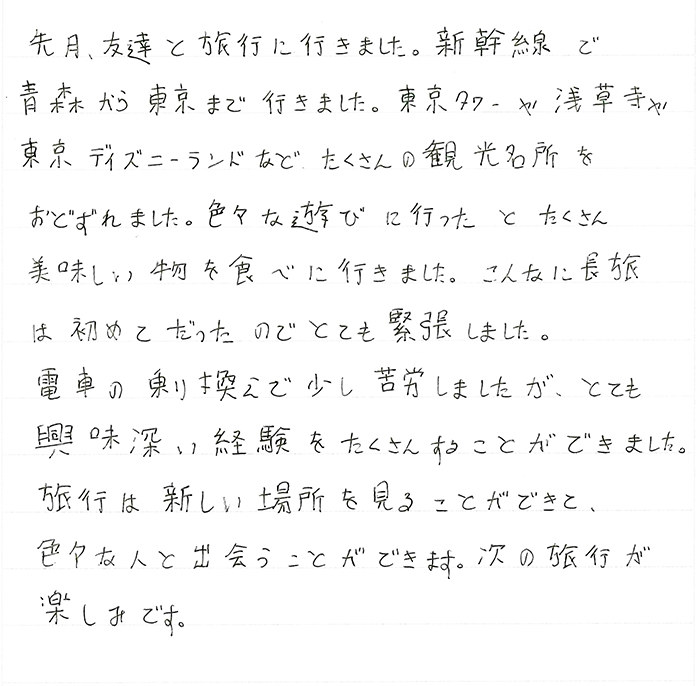 先月、友達と旅行に行きました。新幹線で
青森から東京まで行きました。東京タワーや浅草寺や
東京ディズニーランドなど、たくさんの観光名所を
おどずれました。色々な遊びに行ったとたくさん
美味しい物を食べに行きました。こんなに長旅
は初めてだったのでとても緊張しました。
電車の乗り換えで少し苦労しましたが、とても
興味深い経験をたくさんすることができました。
旅行は新しい場所を見ることができと、
色々な人と出会うことができます。次の旅行が
楽しみです。